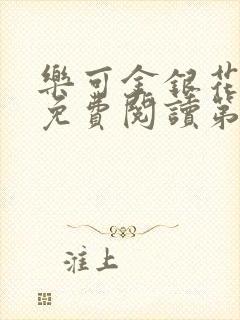 樂可金銀花
免費閱讀第
淮上